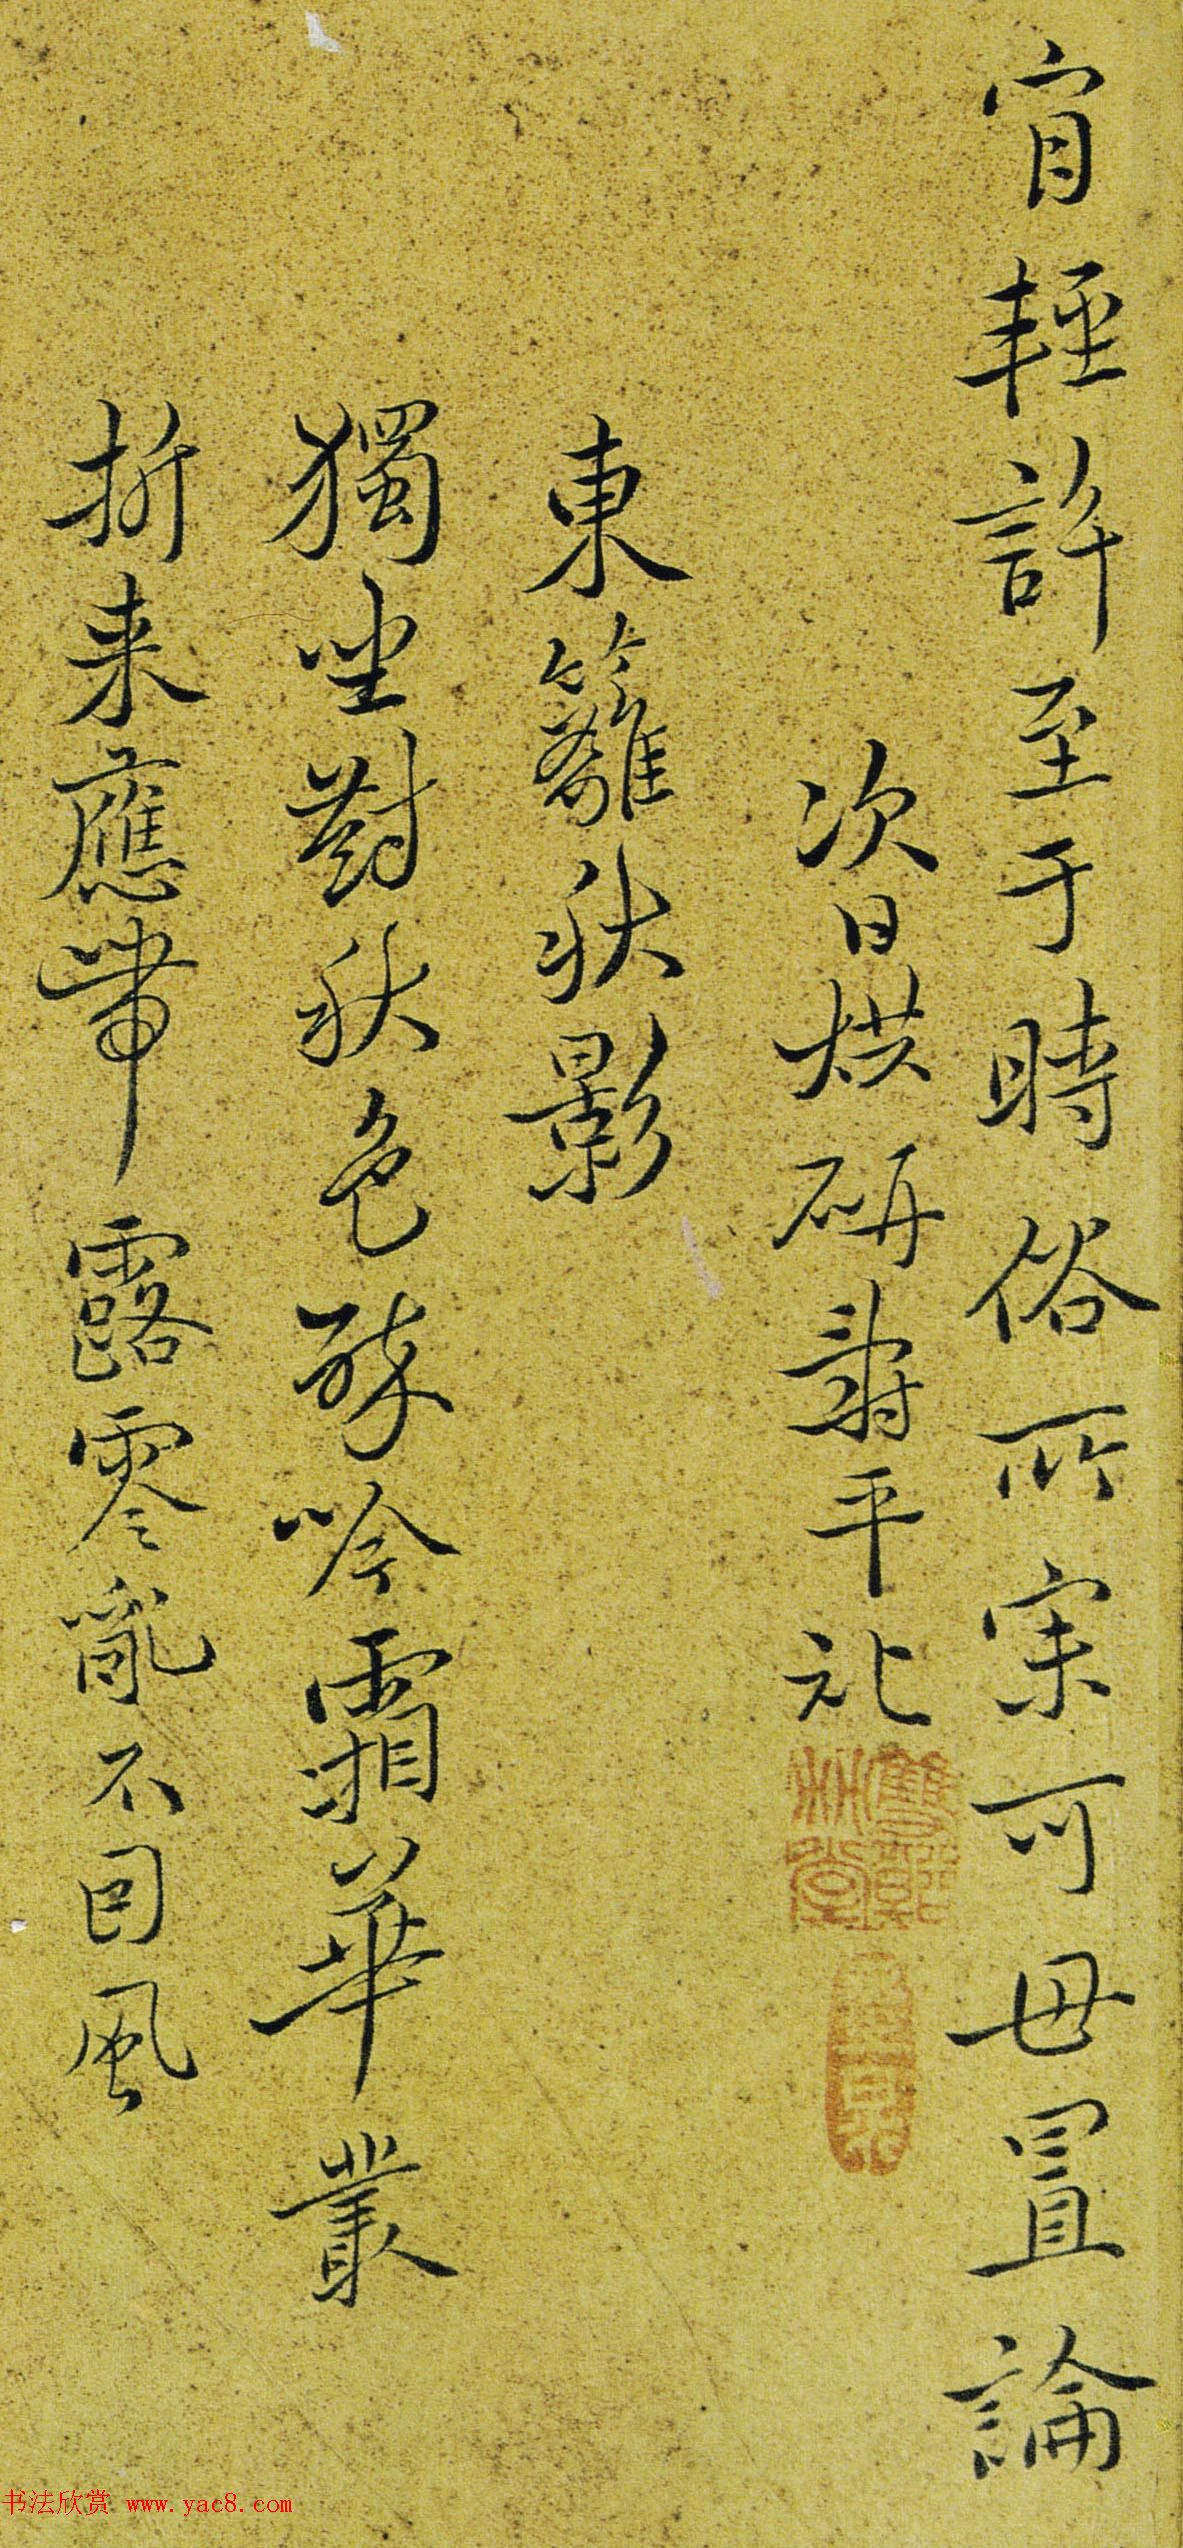 肯輕許至于時俗所宗可毋置論
次日烘研壽平記
東籬秋影
獨坐對秋色醉吟霜華叢
折来應帶露零亂不因風
书法欣赏 www.yac8.com